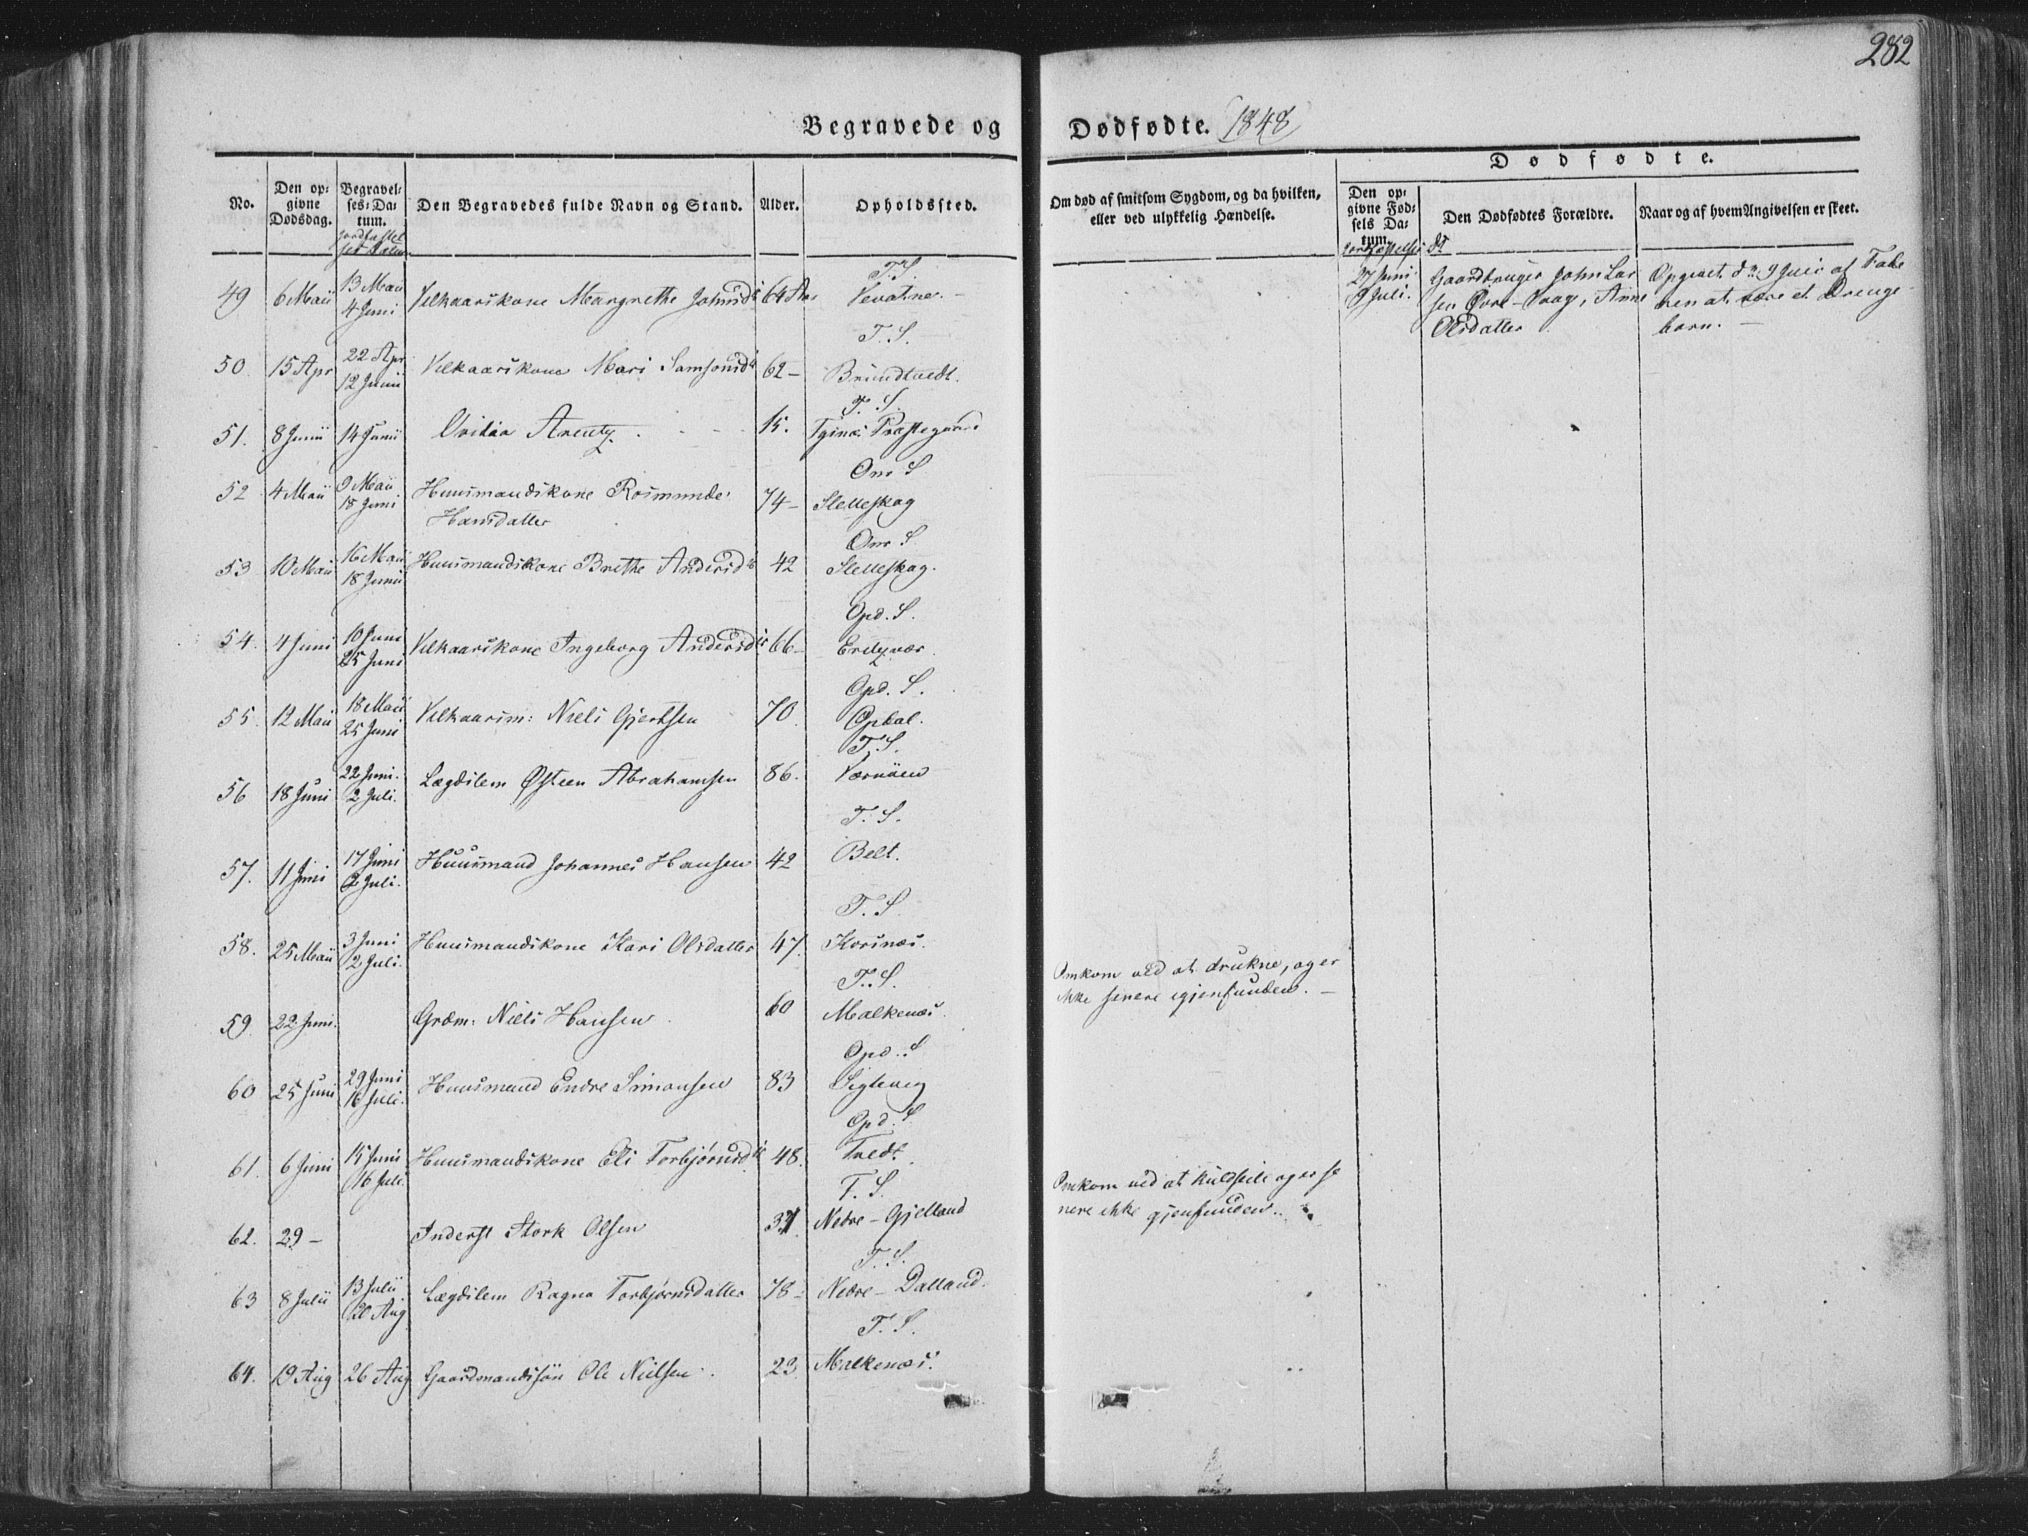 282
Begravede og Dødfødte. 1848
No.
Den opgivne Dødsdag.
Begravelses-Datum.
Den Begravedes fulde Navn og Stand.
Alder.
Opholdssted.
Om død af smitsom Sygdom, og da hvilken, eller ved ulykkelig Hændelse.
Dødfødte.
Den opgivne Fødsels Datum.
Den Dødfødtes Forældre.
Naar og af hvem Angivelsen er skeet.
49 6 Maii 13 Maii 4 Juni Vilkaarskone Margrethe Johnsd 64 Aar T. S.
50. 15 Apr 22 Apr 12 Junii Vilkaarskone Mari Samsonsd 62 – T. S. Brundtvedt.
51. 8 Junii 14 Junii Arentz. 15. T. S. Præstegaard
52 4 Maii 9 Maii 18 Juni Huusmandskone Rosmunde Hansdatter 74 – Om S Stelleskag
53 10 Maii 16 Maii 18 Junii Huusmandskone Brethe Andersd 42 Om S Stelleskag.
54. 4 Juni 10 Juni 25 Juni Vilkaarskone Ingeborg Andersd 66 – Opd. S.
55. 12 Maii 18 Maii 25 Juni Vilkaarsm: Niels Gjertsen 70. Opd. S. Opdal.
56 18 Juni 22 Juni. 2 Juli. Lægdslem Østeen Abrahamsen 86. T. S. Værnöen
57. 11 Juni 17 Juni 2 Juli. Huusmand Johannes Hansen 42 T. S. Belt.
58. 25 Maii 3 Juni 2 Juli. Huusmandskone Kari Olsdatter 47. T. S. Korsnæs.
59. 22 Juni. Grdm: Niels Hansen 60 T. S. Malkenæs. Omkom ved at drukne, og er ikke senere igjenfunden. –
60 25 Juni 29 Juni 16 Juli. Huusmand Endre Simonsen 83 Opd. S Sigtevig
61. 6 Juni 15 Juni 16 Juli. Huusmandskone Eli Torbjørnsd 48. Opd. S Tvedt.
62. 29 – Inderst Stork Olsen T. S. Nedre – Gjelland Omkom ved at kuldseile og er senere ikke gjenfunden.
63 8 Julii 13 Julii 20 Aug Lægdslem Ragna Torbjørnsdatter 78 – T. S. Nedre – Dalland.
64. 19 Aug 26 Aug Gaardmandssön Ole Nielsen. 23. T. S. Malkenæs.
27 Juni 9 Juli. Gaardbruger John Larsen Øvre – Vaage, Anne Olsdatter
Opgivet d. 9 Juli af Faderen at være et Drengebarn. –